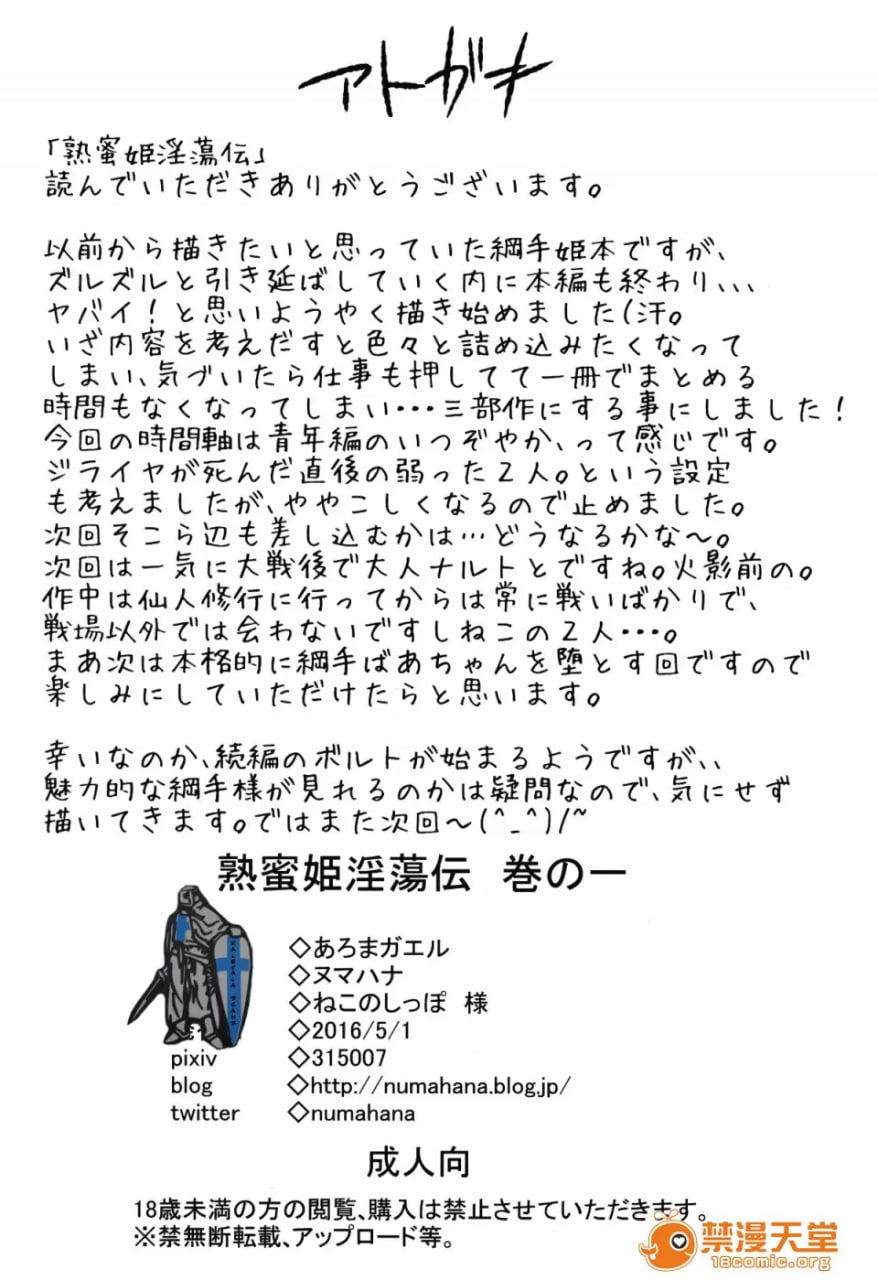 アトガキ
「熟蜜姫淫蕩伝」
読んでいただきありがとうございます。
以前から描きたいと思っていた綱手姫本ですが、
ズルズルと引き延ばしていく内に本編も終わり、、、
ヤバイ!と思いようやく描き始めました(汗。
いざ内容を考えだすと色々と詰め込みたくなって
しまい、気づいたら仕事も押してて一冊でまとめる
時間もなくなってしまい・・・三部作にする事にしました!
今回の時間軸は青年編のいつぞやか、って感じです。
ジライヤが死んだ直後の弱った2人。という設定
も考えましたが、ややこしくなるので止めました。
次回そこら辺も差し込むかは…どうなるかな~。
次回は一気に大戦後で大人ナルトとですね。火影前の。
作中は仙人修行に行ってからは常に戦いばかりで、
戦場以外では会わないですしねこの2人・・・。
まあ次は本格的に綱手ばあちゃんを堕とす回ですので
楽しみにしていただけたらと思います。
幸いなのか、続編のボルトが始まるようですが、、
魅力的な綱手様が見れるのかは疑問なので、気にせず
描いてきます。ではまた次回~(^_^)/~
熟蜜姫淫蕩伝 巻の一
◇あろまガエル
◇ヌマハナ
◇ねこのしっぽ 様
◇2016/5/1
pixiv ◇315007
blog ◇http://numahana.blog.jp/
twitter ◇numahana
KALEVALA SCANS
成人向
18歳未満の方の閲覧、購入は禁止させていただきます。
※禁無断転載、アップロード等。
禁漫天堂
18comic.org